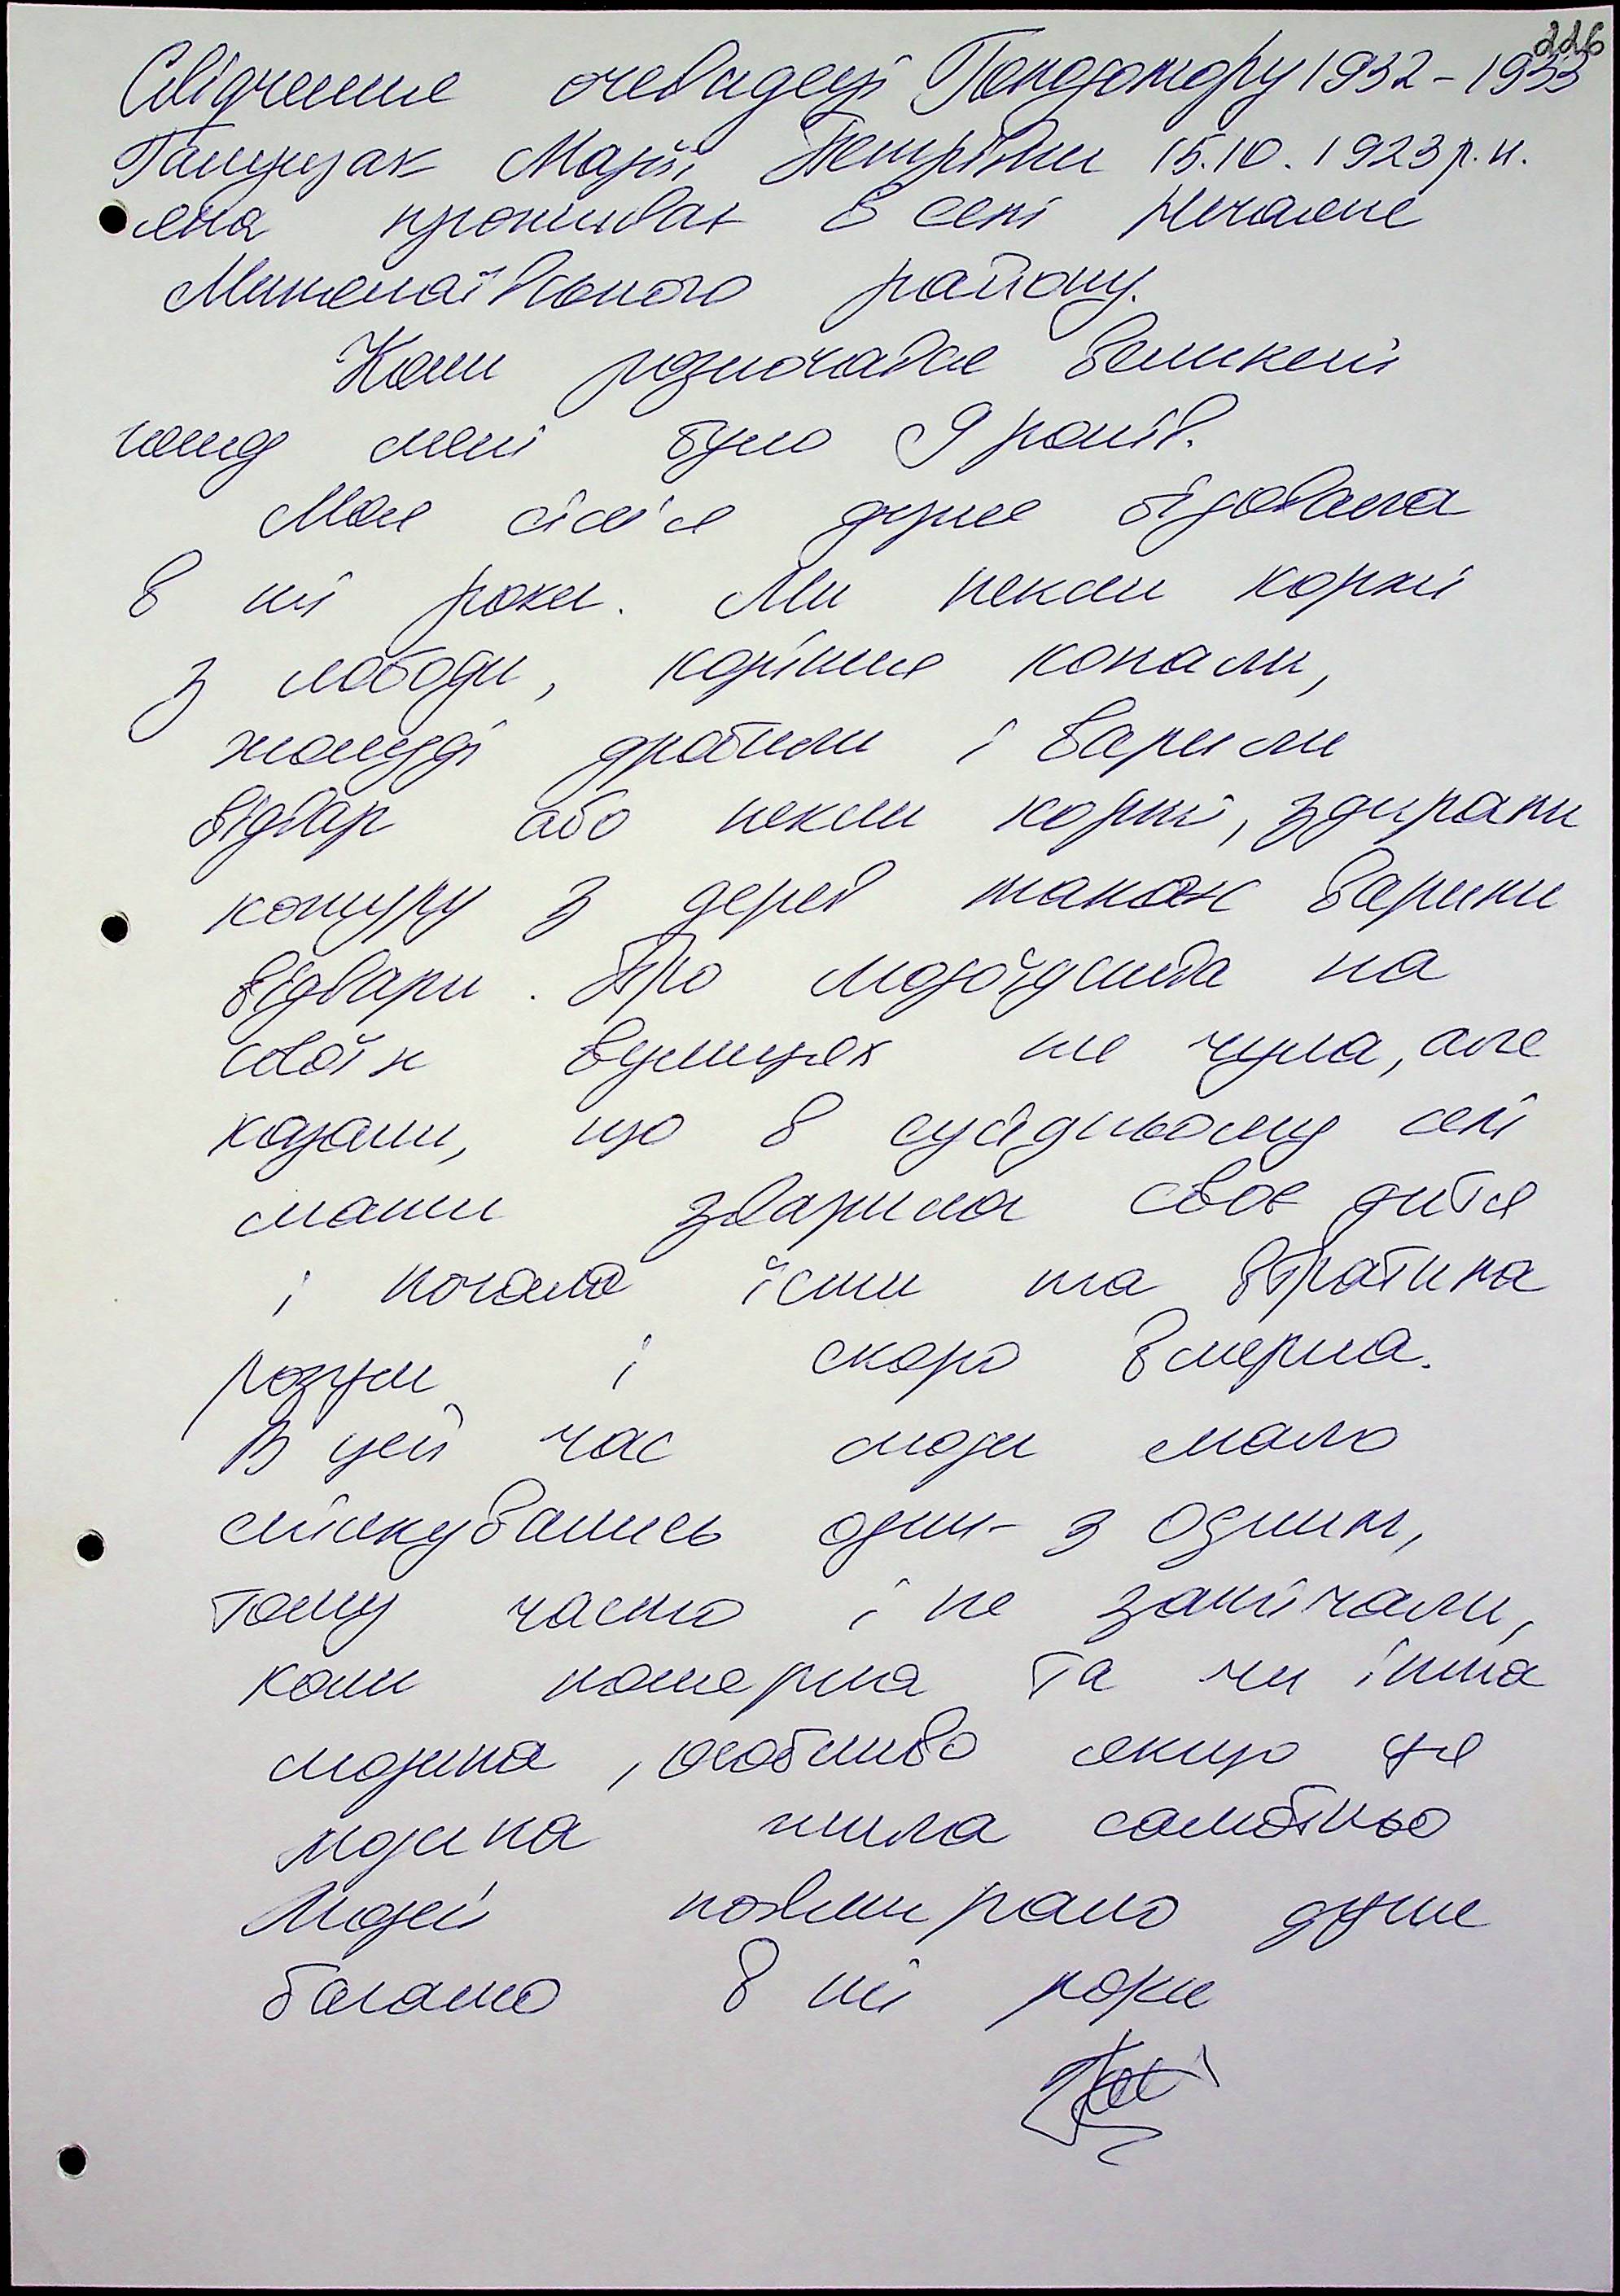 226
Свідчення очевидця Голодомору 1932-1933
Галущак Марії Петрівни 15.10.1923 р.н.
яка проживає в селі Нечаяне
Миколаївського району.
Коли розпочався великий
голод мені було 9 років.
Моя сім'я дуже бідовала
в ті роки. Ми пекли коржі
з лободи, коріння копали,
жолуді дробили і варили
відвар або пекли коржі, здирали
кожуру з дерев також варили
відвари. Про людоїдства на
своїх вулицях не чула, але
казали, що в сусідньому селі
мати зварила своє дитя
і почала їсти та втратила
розум і скоро вмерла.
В цей час люди мало
спілкувались один з одним,
тому часто і не помічали,
коли померла та чи інша
людина, особливо якщо ця
людина жила самотньо
Людей повмирало дуже
багато в ті роки